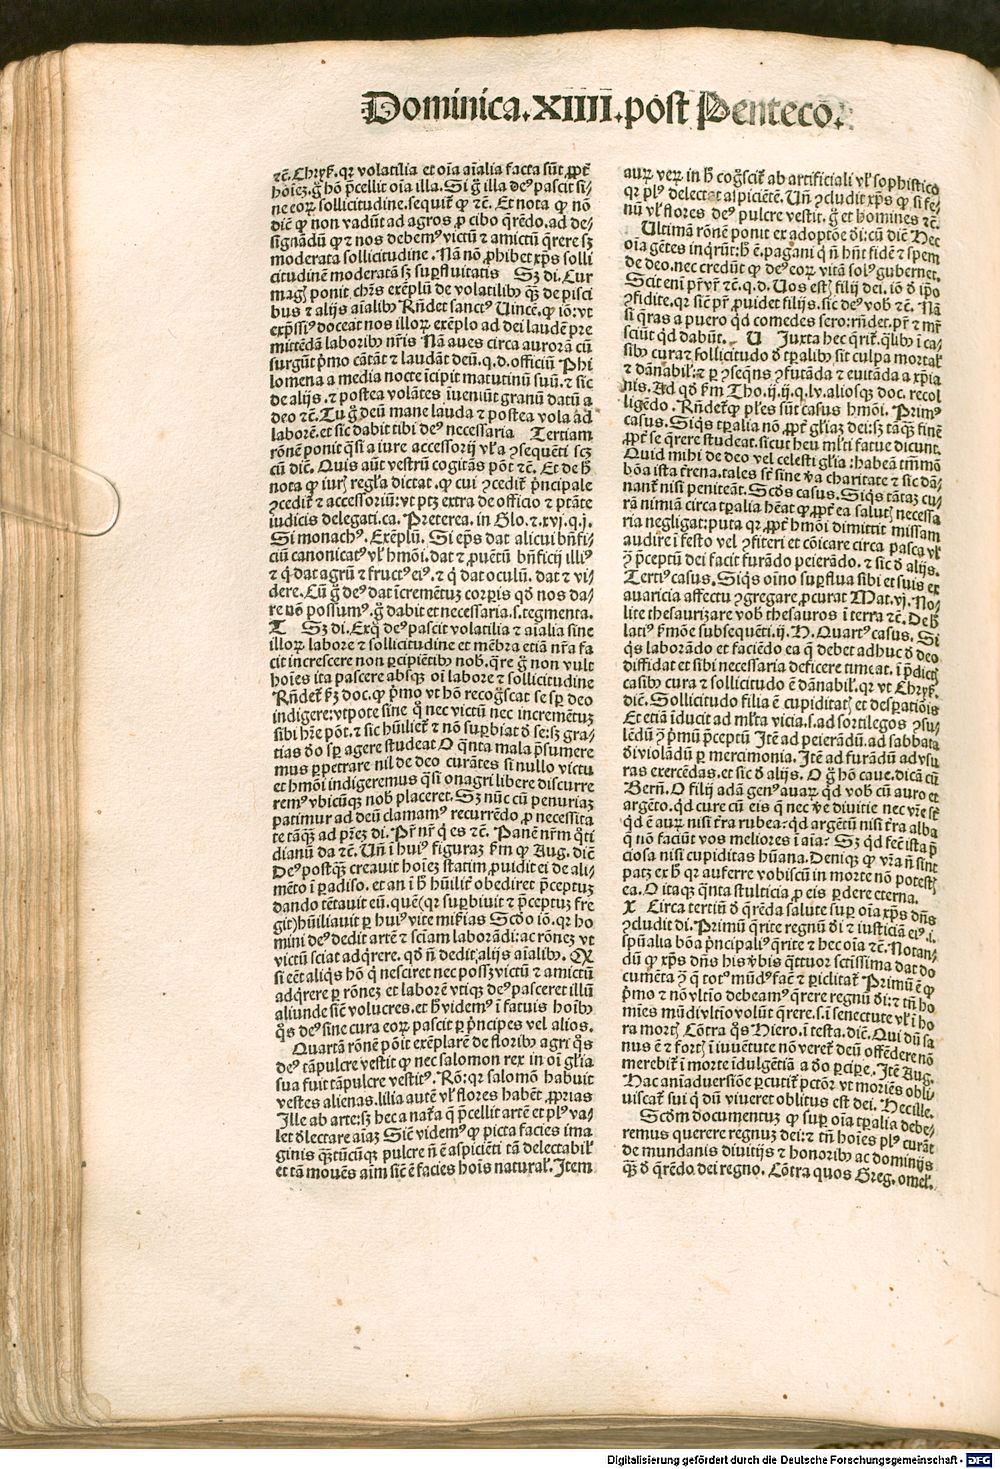 Dominica.XIIII.post Penteco.
ꝛc̄.Chryẜ.qꝛ volatilia et oīa aīalia facta sūt ꝓpt̄
hoīez.g̊ hō p̄cellit oīa illa.Si g̊ illa deꝰ pascit si⸗
ne eoꝝ sollicitudine.sequit̄ ꝙ ꝛc̄. Et nota ꝙ nō
dic̄ ꝙ non vadūt ad agros ꝓ cibo q̄rēdo.ad de⸗
signādū ꝙ ⁊ nos debemꝰ victū ⁊ amictū q̄rere sꝫ
moderata sollicitudine. Nā nō ꝓhibet xp̄s solli
citudinē moderatā sꝫ suꝑfluitatis Sꝫ di. Cur
magꝭ ponit chr̄s exēplū de volatilibꝰ q̄ꝫ de pisci
bus ⁊ alijs aīalibꝰ Rn̄det sanctꝰ Vincē.ꝙ iō:vt
exp̄ssiꝰ doceat nos illoꝝ exēplo ad dei laudē pre
mittēdā laboribꝰ nr̄is Nā aues circa auroꝛā cū
surgūt p̄mo cātāt ⁊ laudāt deū.q.d.officiū Phi
lomena a media nocte īcipit matutinū suū.⁊ sic
de alijs.⁊ postea volātes īueniūt granū datū a
deo ꝛc̄.Tu g̊ deū mane lauda ⁊ postea vola ad
laboꝛē.et sic dabit tibi deꝰ necessaria Tertiam
rōnē ponit q̄si a iure accessorij vl̄a ꝯsequēti scꝫ
cū dic̄. Quis aūt vestrū cogitās pōt ꝛc̄. Et de h̄
nota ꝙ iurꝭ regl̄a dictat.ꝙ cui ꝯcedit̄ p̄ncipale
ꝯcedit̄ ⁊ accessoriū:vt ptꝫ extra de officio ⁊ ptāte
iudicis delegati.ca. Preterea. in Glo.⁊.xvj.q.j.
Si monachꝰ. Exēplū. Si ep̄s dat alicui bn̄fi⸗
ciū canonicatꝰ vl̄ hmōi.dat ⁊ ꝓuētū bn̄ficij illiꝰ
⁊ q̇ dat agrū ⁊ fructꝰ eiꝰ.⁊ q̇ dat oculū. dat ⁊ vi⸗
dere.Cū g̊ deꝰ dat īcremētuꝫ corꝑis qd̄ nos da⸗
re nō possumꝰ.g̊ dabit et necessaria.s.tegmenta.
T Sꝫ di.Exq̊ deꝰ pascit volatilia ⁊ aīalia sine
illoꝝ laboꝛe ⁊ sollicitudine et mēbra etiā nr̄a fa
cit increscere non ꝑcipiētibꝰ nob̄.q̄re g̊ non vult
hoīes ita pascere absqꝫ oī laboꝛe ⁊ sollicitudine
Rn̄det̄ ẜꝫ doc.ꝙ p̄mo vt hō recog̊scat se sꝑ deo
indigere:vtpote sine q̊ nec victū nec incremētuꝫ
sibi hr̄e pōt.⁊ sic hūiliet̄ ⁊ nō suꝑbiat ď se:sꝫ gra⸗
tias ďo sꝑ agere studeat O q̄nta mala p̄sumere
mus ꝑpetrare nil de deo curātes si nullo victu
et hmōi indigeremus q̄si onagri libere discurre
remꝰ vbicūqꝫ nob̄ placeret. Sꝫ nūc cū penuriaꝫ
patimur ad deū clamamꝰ recurrēdo ꝓ necessita
te tāqꝫ ad pr̄eꝫ di. Pr̄ nr̄ q̇ es ꝛc̄. Panē nr̄m q̊ti
dianū da ꝛc̄. Un̄ ī huiꝰ figuraꝫ ẜm ꝙ Aug. dic̄
Deꝰ postqꝫ creauit hoīeꝫ statim ꝓuidit ei de ali⸗
mēto ī ꝑadiso. et an ī h̄ hūilit̄ obediret p̄ceptuꝫ
dando tētauit eū.quē(qꝛ suꝑbiuit ⁊ p̄ceptuꝫ fre
git)hūiliauit ꝑ huiꝰ vite mīẜias Scd̄o iō.qꝛ ho
mini deꝰ dedit artē ⁊ sciam laborādi:ac rōneꝫ vt
victū sciat adq̄rere. qd̄ n̄ dedit alijs aīalibꝰ. Qꝛ
si eēt aliq̇s hō q̇ nesciret nec posꝫ victū ⁊ amictū
adq̄rere ꝑ rōneꝫ et laboꝛē vtiqꝫ deꝰ pasceret illū
aliunde sic̄ volucres.et h̄ videmꝰ ī fatuis hoībꝰ
q̊s deꝰ sine cura eoꝝ pascit ꝑ p̄ncipes vel alios.
Quartā rōnē pōit exēplarē de floribꝰ agri q̊s
deꝰ tāpulcre vestit ꝙ nec salomon rex in oī gl̄ia
sua fuit tāpulcre vestitꝰ. Rō: qꝛ salomō habuit
vestes alienas.lilia autē vl̄ flores habēt ꝓpꝛias
Ille ab arte:sꝫ hec a nat̄a q̄ p̄cellit artē et plꝰ va⸗
let ďlectare aīaꝫ Sic̄ videmꝰ ꝙ picta facies ima
ginis q̄ꝫtūcūqꝫ pulcre n̄ ē aspiciēti tā delectabil̄
et tā mouēs aīm sic̄ ē facies hoīs natural̄. Item
auꝝ veꝝ in h̄ cog̊scit̄ ab artificiali vl̄ sophistico
qꝛ plꝰ delectat aspiciētē. Un̄ ꝯcludit xp̄s ꝙ si fe⸗
nū vl̄ flores deꝰ pulcre vestit. g̊ et homines ꝛc̄.
Ultimā rōnē ponit ex adoptōe ďi: cū dic̄ Hec
oīa gētes inqrūt: h̄ ē. pagani q̇ n̄ hn̄t fidē ⁊ spem
de deo.nec credūt ꝙ deꝰ eoꝝ vitā solꝰ gubernet.
Scit enī pr̄ vr̄ ꝛc̄.q.d. Uos estꝭ filij dei. iō ď ip̄o
ꝯfidite.qꝛ sic̄ pr̄ ꝓuidet filijs.sic deꝰ vob̄ ꝛc̄. Nā
si q̄ras a puero qd̄ comedes sero:rn̄det.pr̄ ⁊ mr̄
sciūt qd̄ dabūt. U Juxta hec q̄rit̄.q̄libꝰ ī ca⸗
sibꝰ cura ⁊ sollicitudo ď tꝑalibꝰ sit culpa mortal̄
⁊ dānabil̄:⁊ ꝑ ꝯseqn̄s ꝯfutāda ⁊ euitāda a xp̄ia
nis.Ad qd̄ ẜm Tho.ij.ij.q.lv.aliosqꝫ doc. recol
ligēdo. Rn̄det̄ ꝙ pl̄es sūt casus hmōi. Primꝰ
casus. Siq̇s tꝑalia nō ꝓpt̄ gl̄iaꝫ dei:sꝫ tāqꝫ finē
ꝓpt̄ se q̄rere studeat.sicut heu ml̄ti fatue dicunt.
Quid mihi de deo vel celesti gl̄ia:habeā tm̄mō
bōa ista t̄rena.tales sc̄ sine v̄a charitate ⁊ sic dā⸗
nant̄ nisi peniteāt. Scd̄s casus. Siq̇s tātaꝫ cu⸗
rā nimiā circa tꝑalia hēat ꝙ ꝓpt̄ ea salutꝭ necessa
ria negligat:puta qꝛ ꝓpt̄ hmōi dimittit missam
audire ī festo vel ꝯfiteri et cōicare circa pasca vl̄
ꝯ̄ p̄ceptū dei facit furādo peierādo.⁊ sic ď alijs.
Tertiꝰ casus. Siq̇s oīno suꝑflua sibi et suis ex
avaricia affectu ꝯgregare ꝓcurat Mat.vj. No⸗
lite thesaurizare vob̄ thesauros ī terra ꝛc̄. De h̄
latiꝰ ẜmōe subsequēti.ij. N. Quartꝰ casus. Si
q̇s laborādo et faciēdo ea q̄ debet adhuc ď deo
diffidat et sibi necessaria deficere timeat.ī p̄dictꝭ
casibꝰ cura ⁊ sollicitudo ē dānabil̄.qꝛ vt Chryẜ.
dic̄. Sollicitudo filia ē cupiditatꝭ et desꝑatiōis
Et etiā īducit ad ml̄ta vicia.s.ad sortilegos ꝯsu⸗
lēdū ꝯ̄ p̄mū p̄ceptū Itē ad peierādū.ad sabbata
ďviolādū ꝑ mercimonia. Itē ad furādū advsu
ras exercēdas.et sic ď alijs. O g̊ hō caue.dicā cū
Bern̄. O filij adā genꝰ auaꝝ qd̄ vob̄ cū auro et
argēto.qd̄ cure cū eis q̄ nec v̄e diuitie nec vr̄e st̄
qd̄ ē auꝝ nisi t̄ra rubea?qd̄ argētū nisi t̄ra alba
q̄ nō faciūt vos meliores ī aīa? Sꝫ qd̄ fec̄ ista p̄
ciosa nisi cupiditas hūana. Deniqꝫ ꝙ vr̄a n̄ sint
patꝫ ex h̄ qꝛ auferre vobiscū in morte nō potestꝭ
ea. O itaqꝫ q̄nta stulticia ꝓ eis ꝑdere eterna.
X Circa tertiū ď q̄rēda salute suꝑ oīa xp̄s dn̄s
ꝯcludit di. Primū q̄rite regnū ďi ⁊ iusticiā eiꝰ.i.
spūalia bōa p̄ncipaliꝰ q̄rite ⁊ hec oīa ꝛc̄. Notan⸗
dū ꝙ xp̄s dn̄s his v̄bis q̄ttuor sctissima dat do
cumēta ꝯ̄ q̄ totꝰ mūdꝰ fac̄ ⁊ ꝑiclitat̄ Primū ē ꝙ
p̄mo ⁊ nō vltīo debeamꝰ q̄rere regnū ďi:⁊ tn̄ ho
mīes mūdi vltīo volūt q̄rere.s.ī senectute vl̄ ī ho
ra mortꝭ Cōtra q̊s Hiero.ī testa. dic̄. Qui dū sa
nus ē ⁊ fortꝭ ī iuuētute nō veret̄ deū offēdere nō
merebit̄ ī morte idulgētiā a ďo ꝑcipe. Itē Aug.
Hac aniaduersiōe ꝑcutit̄ pctōr vt moriēs obli⸗
uiscat̄ sui q̇ dū viueret oblitus est dei. Hec ille.
Scd̄m documentuꝫ ꝙ suꝑ oīa tꝑalia debe⸗
remus querere regnuꝫ dei:⁊ tn̄ hoīes plꝰ curāt
de mundanis diuitijs ⁊ honoribꝰ ac dominijs
q̄ꝫ ď q̄rēdo dei regno. Cōtra quos Greg. omel̄.
Digitalisierung gefördert durch die Deutsche Forschungsgemeinschaft - DFG